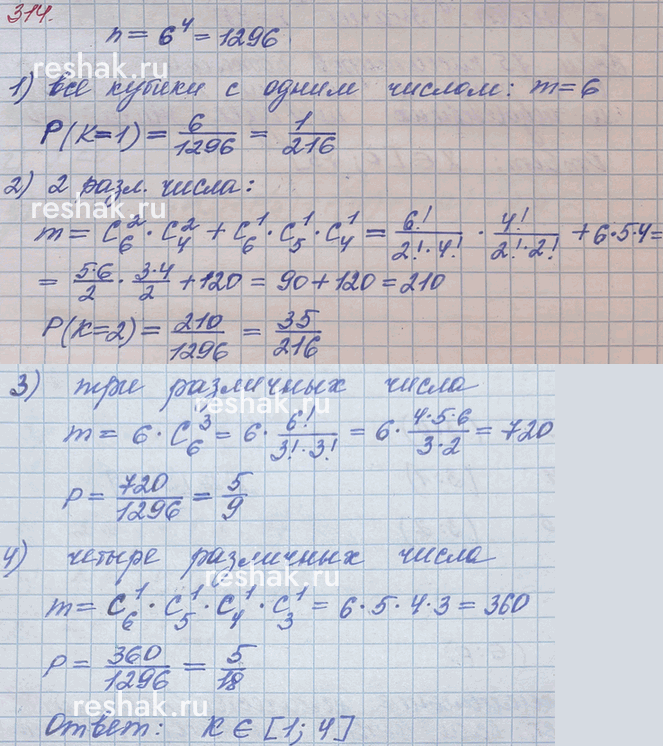 314.
n = 6^4 = 1296.
reshak.ru
1) все кубики с одним числом: m=6
P(K=1) = 6/1296 = 1/216
reshak.ru
2) 2 разл. числа:
reshak.ru
m = C_6^2 · C_4^2 + C_6^1 · C_5^1 · C_4^1 = 6!/(2!·4!) · 4!/(2!·2!) + 6·5·4 =
= 5·6/2 · 3·4/2 + 120 = 90 + 120 = 210
P(K=2) = 210/1296 = 35/216
reshak.ru
3) три различных числа
reshak.ru
m = 6 · C_6^3 = 6 · 6!/(3!·3!) = 6 · 4·5·6/(3·2) = 720
P = 720/1296 = 5/9
4) четыре различных числа
reshak.ru
m = C_6^1 · C_5^1 · C_4^1 · C_3^1 = 6·5·4·3 = 360
P = 360/1296 = 5/18
reshak.ru
Ответ: K ∈ [1; 4]